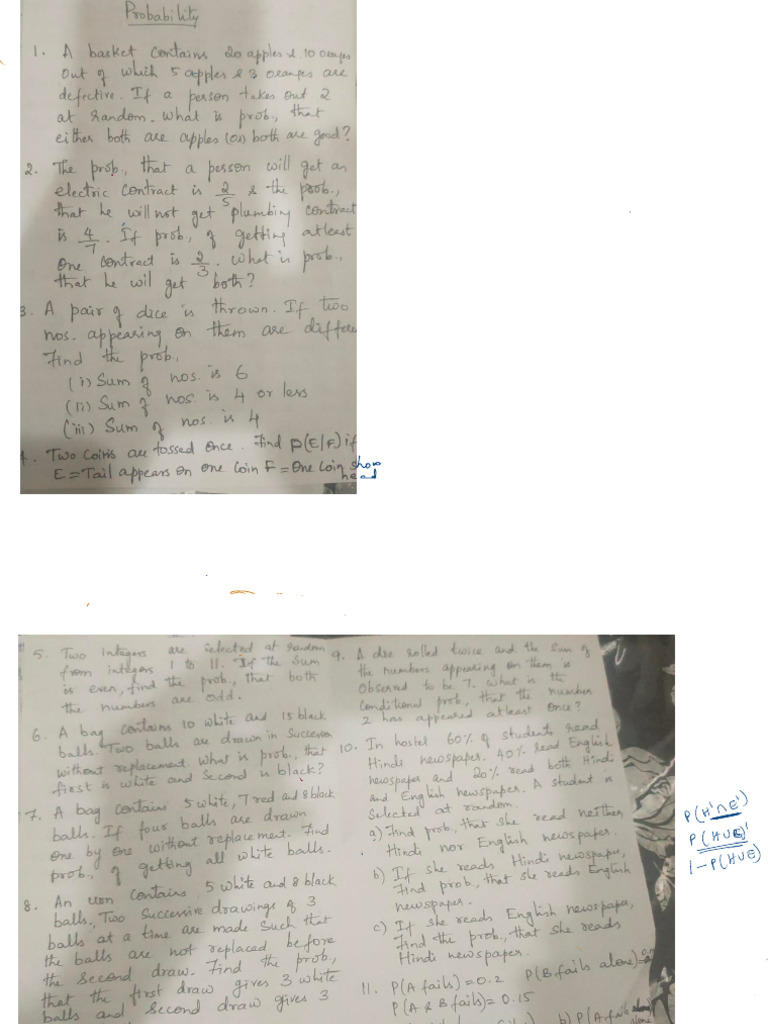 Probability
1. A basket contains 20 apples & 10 oranges
out of which 5 apples & 3 oranges are
defective. If a person takes out 2
at random. What is prob., that
either both are apples (or) both are good?
2. The prob., that a person will get an
electric contract is 2/5 & the prob.,
that he will not get plumbing contract
is 4/7. If prob., of getting atleast
one contract is 2/3. What is prob.,
that he will get both?
3. A pair of dice is thrown. If two
nos. appearing on them are differe
Find the prob.,
(i) Sum of nos. is 6
(ii) Sum of nos. is 4 or less
(iii) Sum of nos. is 4
4. Two coins are tossed once. Find P(E/F) if
E = Tail appears on one coin F = One coin show
head
5. Two integers are selected at random
from integers 1 to 11. If the sum
is even, find the prob., that both
the numbers are odd.
6. A bag contains 10 white and 15 black
balls. Two balls are drawn in succession
without replacement. What is prob., that
first is white and second is black?
7. A bag contains 5 white, 7 red and 8 black
balls. If four balls are drawn
one by one without replacement. Find
prob., of getting all white balls.
8. An urn contains 5 white and 8 black
balls. Two successive drawings of 3
balls at a time are made such that
the balls are not replaced before
the second draw. Find the prob.,
that the first draw gives 3 white
balls and second draw gives 3
9. A die rolled twice and the sum of
the numbers appearing on them is
observed to be 7. What is the
conditional prob., that the number
2 has appeared atleast once?
10. In hostel 60% of students read
Hindi newspaper. 40% read English
newspaper and 20% read both Hindi
and English newspaper. A student is
selected at random.
a) Find prob., that she read neither
Hindi nor English newspaper.
b) If she reads Hindi newspaper,
Find prob., that she reads English
newspaper.
c) If she reads English newspaper,
Find the prob., that she reads
Hindi newspaper.
11. P(A fails) = 0.2 P(B fails alone) =
P(A & B fails) = 0.15
b) P(A fails alone
P(H'∩E')
P(H∪E)'
1-P(H∪E)